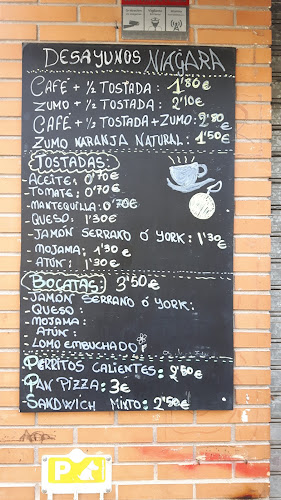 DESAYUNOS NIAGARA
CAFÉ + ½ TOSTADA : 1'80 €
ZUMO + ½ TOSTADA : 2'10€
CAFÉ + ½ TOSTADA + ZUMO: 2'80
ZUMO NARANJA NATURAL: 1'50€
TOSTADAS:
- ACEITE: 0'70€
- TOMATE: 0'70€
- MANTEQUILLA: 0'70€
- QUESO: 1'30€
- JAMÓN SERRANO Ó YORK: 1'30€
- MOJAMA: 1'30€
- ATÚN: 1'30€
BOCATAS: 3'50€
- JAMÓN SERRANO Ó YORK:
- QUESO :
- MOJAMA :
- ATÚN :
- LOMO EMBUCHADO
PERRITOS CALIENTES: 2'50€
PAN PIZZA: 3€
SANDWICH MIXTO: 2'50€
P